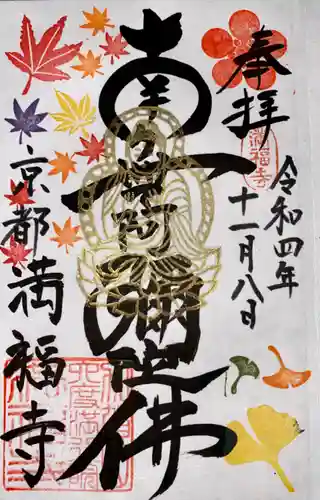 奉拝
令和四年
十一月八日
南無阿弥陀佛
京都満福寺
満福寺